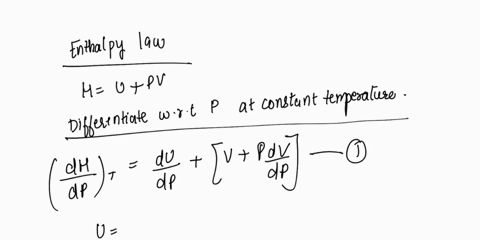 Enthalpy law
H = U + PV
Differentiate w.r.t P at constant temperature.
(dH/dP)T = dU/dP + [V + P dV/dP] — ①
U =